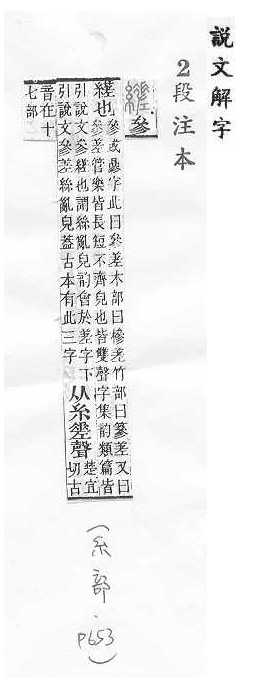 說文解字
2段注本
縒 參
縒也參或蔘字此曰參差木部曰槮差竹部曰篸差又曰
參差管樂皆長短不齊皃也皆雙聲字集韵類篇皆
引說文參縒也謂絲亂皃韵會於差字下
引說文參差絲亂皃葢古本有此三字
从糸差聲
楚宜
切古
音在十
七部
(糸部.
P653)